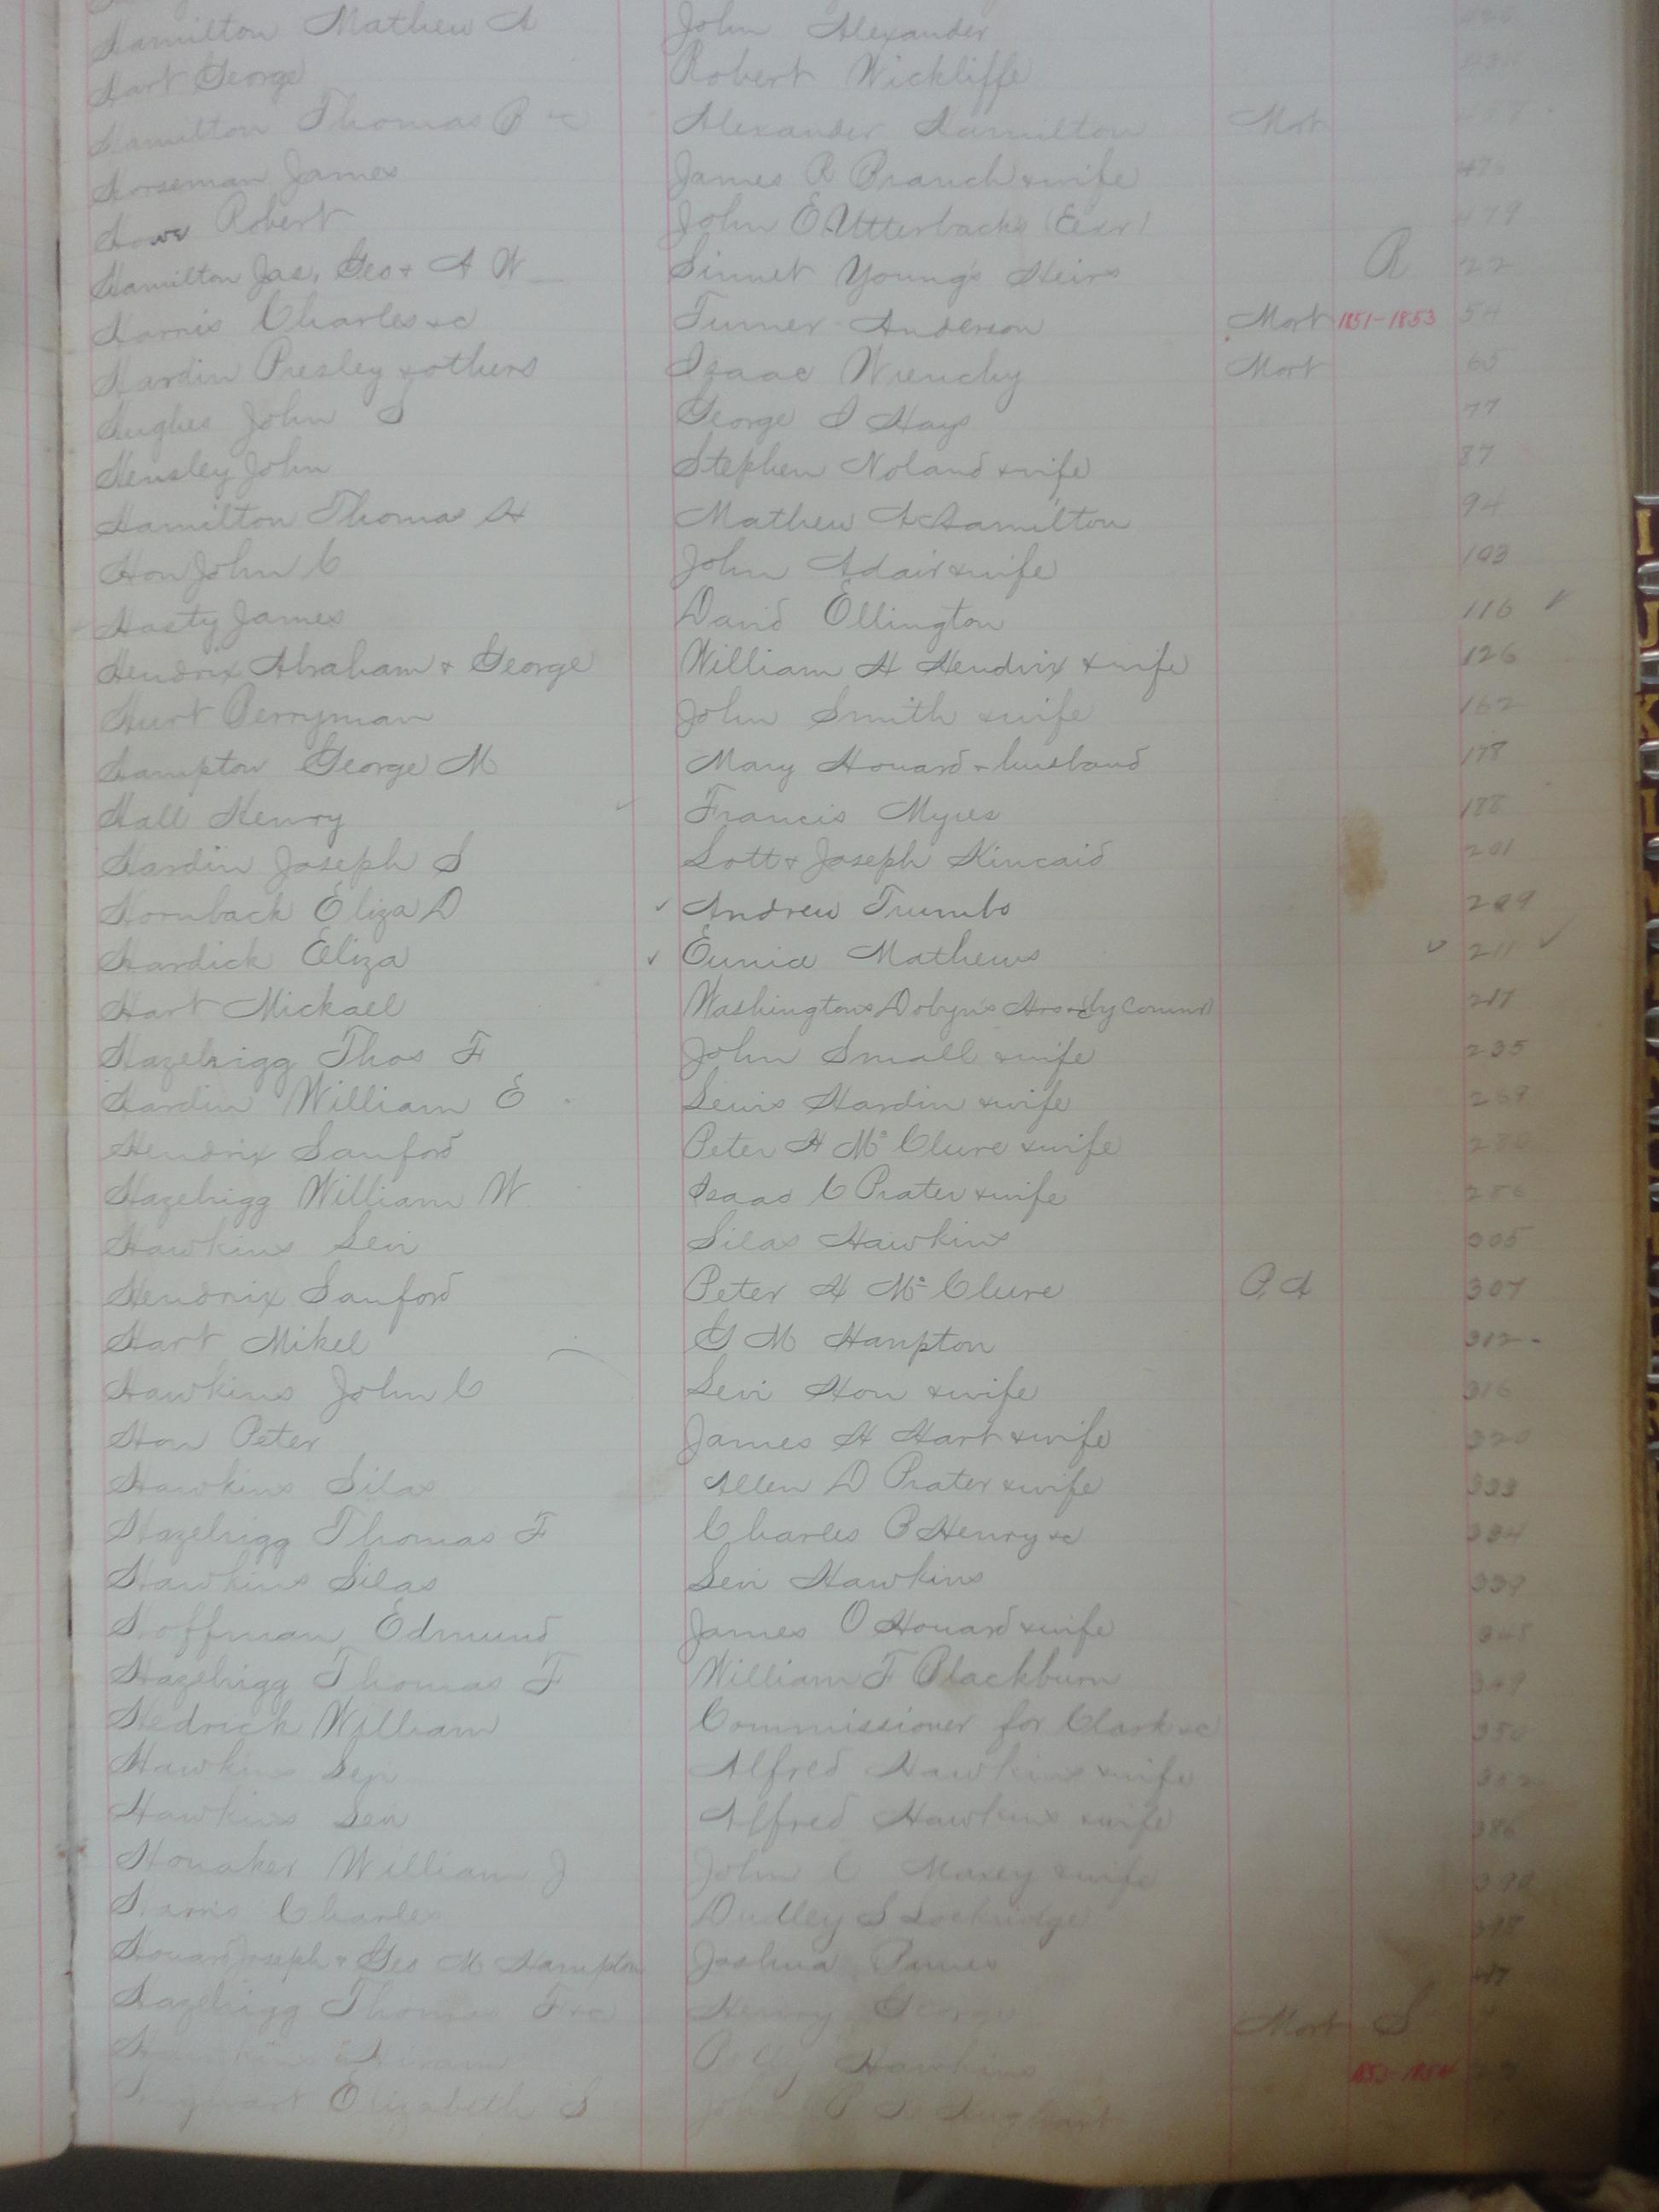 Hamilton Mathew A John Alexander
Hart George Robert Wickliffe
Hamilton Thomas &c Alexander Hamilton Mort
Horseman James James R Branch & wife 476
Howe Robert John E Utterbacks (Exr) 479
Hamilton Jas, Geo & A W Sinnet Young's Heirs R 22
Harris Charles &c Turner Anderson Mort 1851-1853 54
Hardin Presley & others Isaac Wrenchy Mort 65
Hughes John S George S Hays 77
Hensley John Stephen Noland & wife 87
Hamilton Thomas H Mathew A Hamilton 94
Hon John C John Adair & wife 103
Hasty James David Ellington 116 ✓
Hendrix Abraham & George William H Hendrix & wife 126
Hurt Berryman John Smith & wife 162
Hampton George M Mary Howard & husband 178
Hall Henry Francis Myres 188
Hardin Joseph S Lott & Joseph Kincaid 201
Hornback Eliza D ✓ Andrew Trumbo 209
Hardick Eliza ✓ Eunice Mathews ✓ 211 ✓
Hart Mickael Washington Dobyn's by Comm 217
Hazelrigg Thos F John Small & wife 235
Hardin William E Lewis Hardin & wife 269
Hendrix Sanford Peter H McClure & wife 280
Hazelrigg William W Isaac C Prater & wife 286
Hawkins Levi Silas Hawkins 305
Hendrix Sanford Peter H McClure P. A 307
Hart Mikel G M Hanpton 312
Hawkins John C Levi Hon & wife 316
Hon Peter James H Hart & wife 320
Hawkins Silas Allen D Prater & wife 333
Hazelrigg Thomas F Charles P Henry &c 334
Hawkins Silas Levi Hawkins 339
Hoffman Edmund James O Howard & wife 345
Hazelrigg Thomas F William F Blackburn 349
Hedrick William Commissioner for Clark &c 350
Hawkins Levi Alfred Hawkins & wife 362
Hawkins Levi Alfred Hawkins & wife 386
Honaker William J John C Maxey & wife 390
Harris Charles Dudley S Lockridge 395
Howard Joseph & Geo M Hampton Joshua Barnes
Hazelrigg Thomas F &c Henry George Mort S
Hawkins Hiram Polly Hawkins 1853-1854
Elizabeth S John